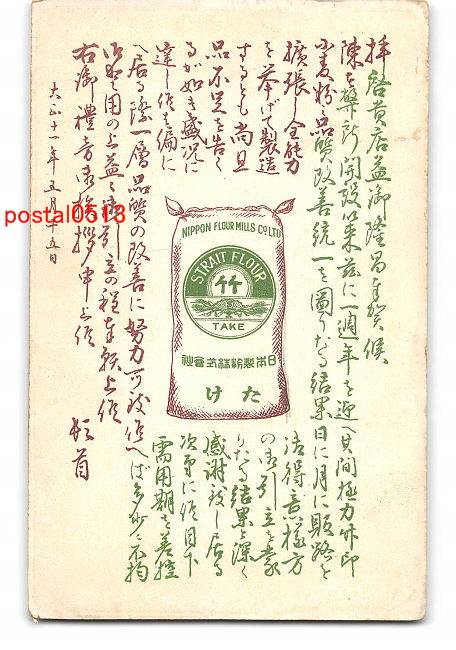 拝啓貴店益御隆昌奉賀候
陳者弊所開設以来茲に一週年を迎へ其間極力竹印
小麦粉の品質改善統一を図りたる結果日に月に販路を
拡張し全能力
を挙げて製造
するとも尚且
品不足を告ぐ
るが如き盛況に
達し候も偏に
御得意様方
の御引立を蒙
りたる結果と深く
感謝致し居る
次第に候目下
需用期を差控
へ居る際一層品質の改善に努力可致候へば多少に不拘
御愛用の上益々御引立の程奉願上候
右御礼旁御挨拶申上候
頓首
大正十一年五月十五日
NIPPON FLOUR MILLS CO LTD
STRAIT FLOUR
竹
TAKE
日本製粉株式会社
たけ
postal0513